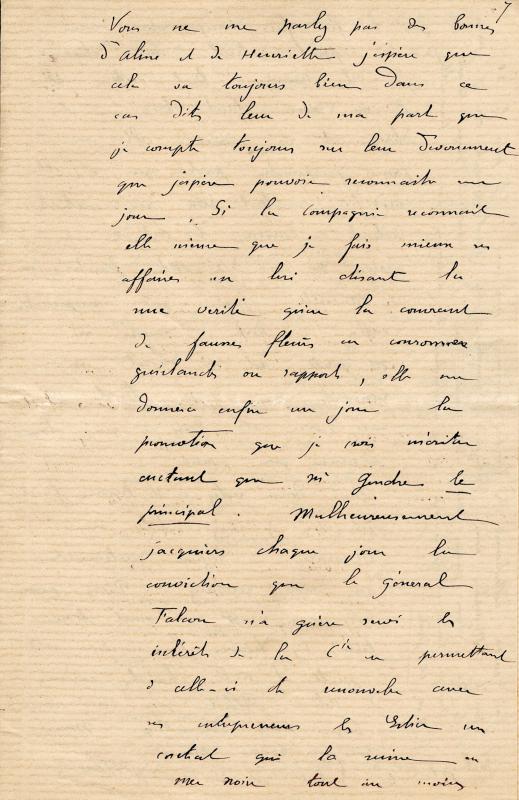 7
Vous ne me parlez pas des bonnes
d'Aline et de Henriette j'espère que
cela va toujours bien dans ce
cas dites leur de ma part que
je compte toujours sur leur dévouement
que j'espère pouvoir reconnaitre un
jour. Si la Compagnie reconnait
elle même que je fais mieux ses
affaires en lui disant la
nue vérité qu'en la couvrant
de fausses fleurs en
guirlandes ou rapports, elle me
donnera enfin un jour la
promotion que je crois mériter
autant que ses Gendres le
principal. Malheureusement
j'acquiers chaque jour la
conviction que le Général
Falcon n'a guère servi les
intérêts de la Cie en permettant
à celle-ci de renouveler avec
ses entrepreneurs les un
contrat qui la ruine en
mer noire tout au moins